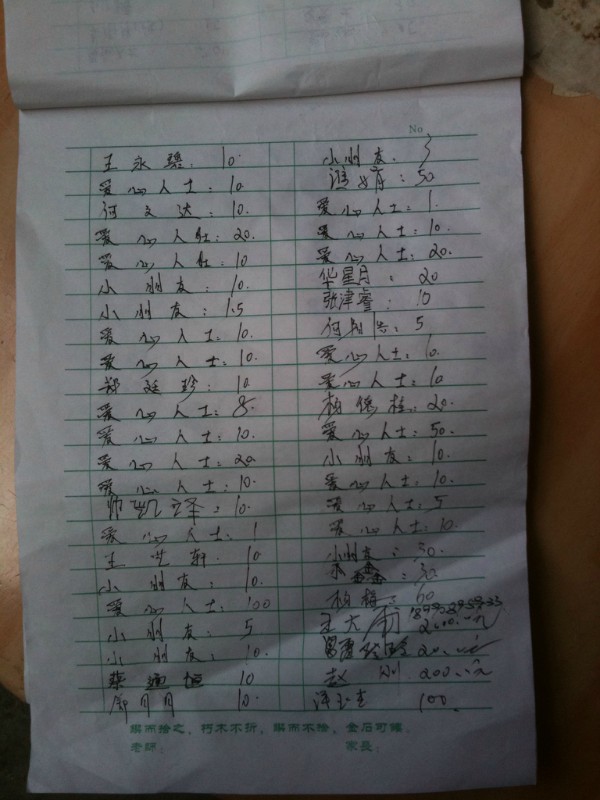 No
王永碧. 10.
爱心人士: 10.
何文达: 10.
爱心人士: 20.
爱心人士: 10
小朋友: 10
小朋友: 1.5
爱心人士: 10.
爱心人士: 10.
郑廷珍: 10.
爱心人士: 8.
爱心人士: 10.
爱心人士: 20
爱心人士: 10.
帅凯译: 10.
爱心人士: 1
王世轩. 10
小朋友: 10.
爱心人士: 100
小朋友: 5
小朋友: 10.
10
月月 10.
小朋友. 3
: 50
爱心人士: 1.
爱心人士: 10.
爱心人士: 20.
华星月: 20
张津睿. 10
何: 5
爱心人士: 10.
爱心人士: 10
柏保桂: 20.
爱心人士: 50.
小朋友: 10.
爱心人士: 10.
爱心人士: 5
爱心人士: 10.
小朋友: 30.
鑫: 30
柏梅: 60
王大
赵刚. 200
100.
锲而舍之，朽木不折，锲而不舍，金石可镂。
老师： 家长：